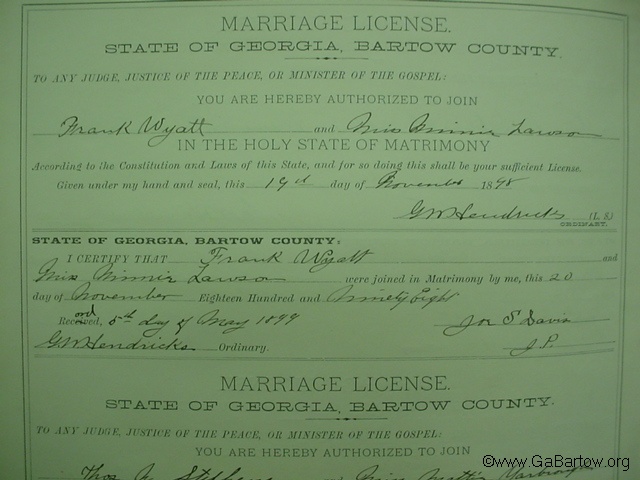 MARRIAGE LICENSE.
STATE OF GEORGIA, BARTOW COUNTY.
TO ANY JUDGE, JUSTICE OF THE PEACE, OR MINISTER OF THE GOSPEL:
YOU ARE HEREBY AUTHORIZED TO JOIN
Frank Wyatt and Miss Minnie Lawson
IN THE HOLY STATE OF MATRIMONY
According to the Constitution and Laws of this State, and for so doing this shall be your sufficient License.
Given under my hand and seal, this 19th day of November 1898
GW Hendricks (L. S.)
ORDINARY.
STATE OF GEORGIA, BARTOW COUNTY:
I CERTIFY THAT Frank Wyatt and
Miss Minnie Lawson were joined in Matrimony by me, this 20
day of November Eighteen Hundred and Ninety Eight
Recorded, 5th day of May 1899 Jos S Davis
GW Hendricks Ordinary. J.P.
MARRIAGE LICENSE.
STATE OF GEORGIA, BARTOW COUNTY.
TO ANY JUDGE, JUSTICE OF THE PEACE, OR MINISTER OF THE GOSPEL:
YOU ARE HEREBY AUTHORIZED TO JOIN
Thos Stephens and Miss
©www.GaBartow.org